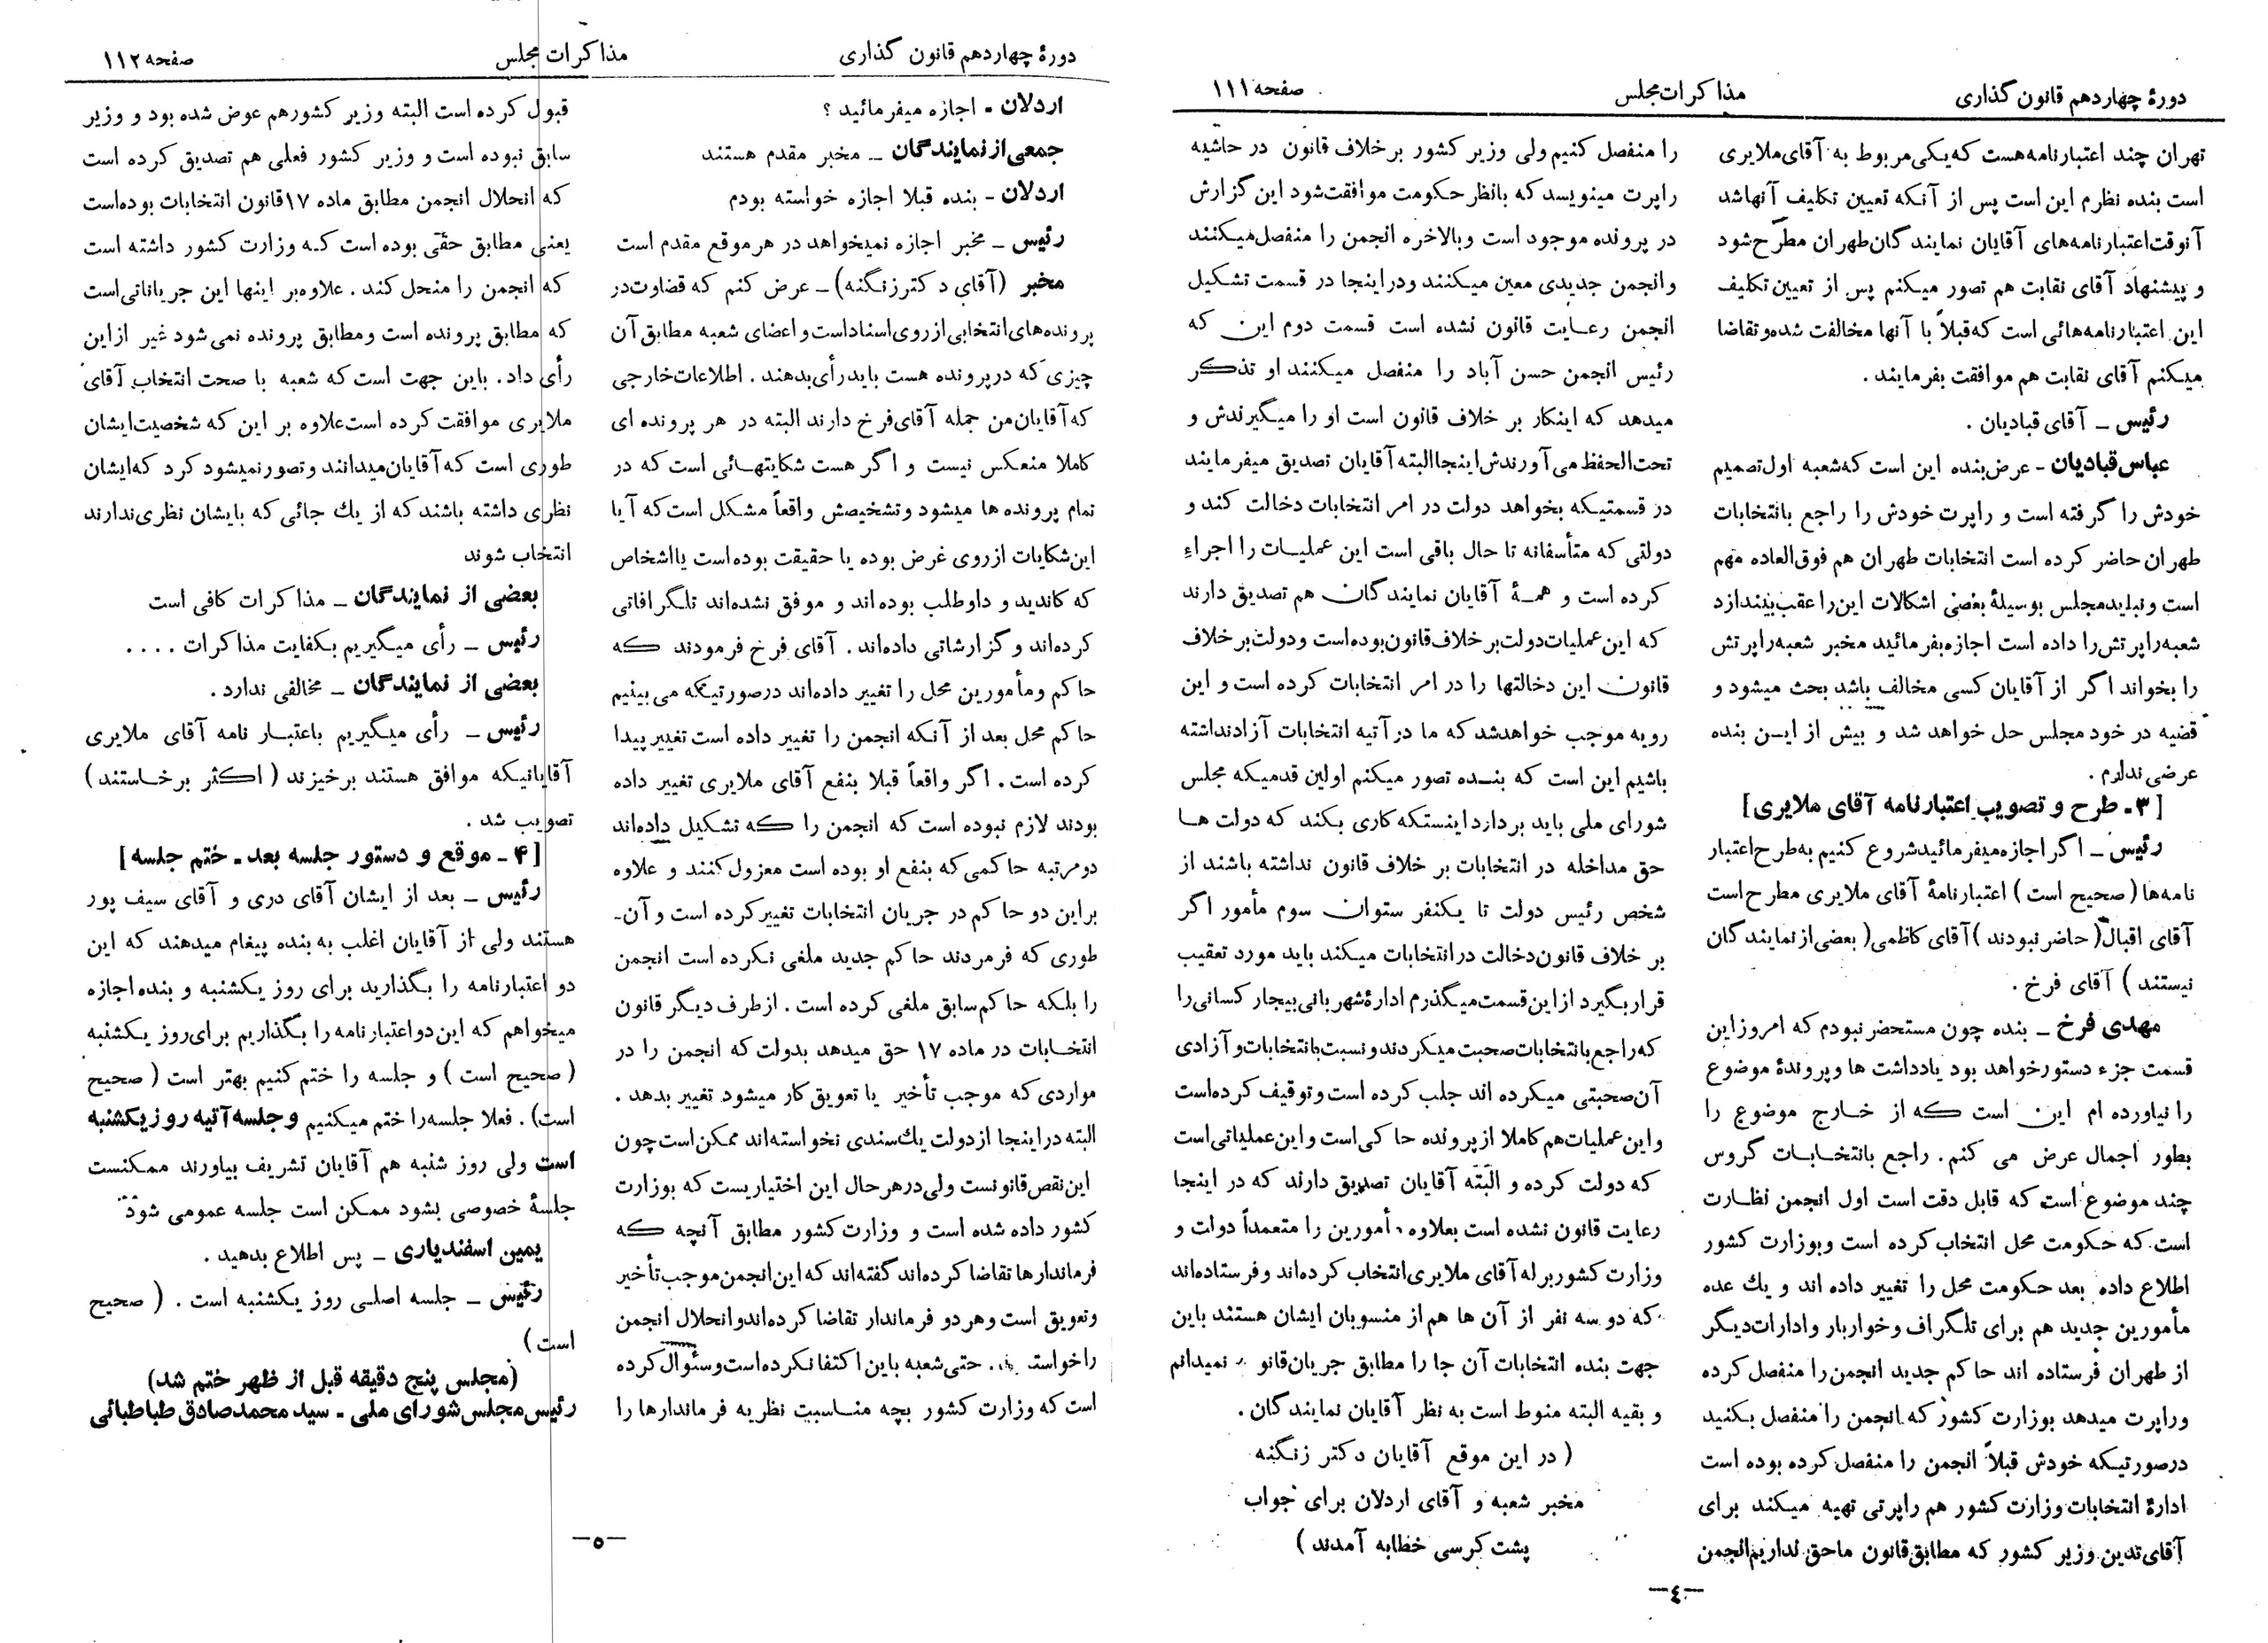 دورهٔ چهاردهم قانون گذاری
مذاکرات مجلس
صفحه ۱۱۱
تهران چند اعتبارنامه هست که یکی مربوط به آقای ملایری
است بنده نظرم این است پس از آنکه تعیین تکلیف آنها شد
آنوقت اعتبارنامه‌های آقایان نمایندگان طهران مطرح شود
و پیشنهاد آقای نقابت هم تصور میکنم پس از تعیین تکلیف
این اعتبارنامه‌هائی است که قبلاً با آنها مخالفت شده و تقاضا
میکنم آقای نقابت هم موافقت بفرمایند .
رئیس ـ آقای قبادیان .
عباس قبادیان ـ عرض بنده این است که شعبه اول تصمیم
خودش را گرفته است و راپرت خودش را راجع بانتخابات
طهران حاضر کرده است انتخابات طهران هم فوق‌العاده مهم
است و نباید مجلس بوسیلهٔ بعضی اشکالات این را عقب بیندازد
شعبه راپرتش را داده است اجازه بفرمائید مخبر شعبه راپرتش
را بخواند اگر از آقایان کسی مخالف باشد بحث میشود و
قضیه در خود مجلس حل خواهد شد و بیش از این بنده
عرضی ندارم .
[ ۳ـ طرح و تصویب اعتبارنامه آقای ملایری ]
رئیس ـ اگر اجازه میفرمائید شروع کنیم به طرح اعتبار
نامه‌ها ( صحیح است ) اعتبارنامهٔ آقای ملایری مطرح است
آقای اقبال ( حاضر نبودند ) آقای کاظمی ( بعضی از نمایندگان
نیستند ) آقای فرخ .
مهدی فرخ ـ بنده چون مستحضر نبودم که امروز این
قسمت جزء دستور خواهد بود یادداشت ها و پروندهٔ موضوع
را نیاورده ام این است که از خارج موضوع را
بطور اجمال عرض می کنم . راجع بانتخابات گروس
چند موضوع است که قابل دقت است اول انجمن نظارت
است که حکومت محل انتخاب کرده است و بوزارت کشور
اطلاع داده بعد حکومت محل را تغییر داده اند و یك عده
مأمورین جدید هم برای تلگراف و خواربار و ادارات دیگر
از طهران فرستاده اند حاکم جدید انجمن را منفصل کرده
و راپرت میدهد بوزارت کشور که انجمن را منفصل بکنید
درصورتیکه خودش قبلاً انجمن را منفصل کرده بوده است
ادارهٔ انتخابات وزارت کشور هم راپرتی تهیه میکند برای
آقای تدین وزیر کشور که مطابق قانون ما حق نداریم انجمن
را منفصل کنیم ولی وزیر کشور بر خلاف قانون در حاشیه
راپرت مینویسد که با نظر حکومت موافقت شود این گزارش
در پرونده موجود است و بالاخره انجمن را منفصل میکنند
و انجمن جدیدی معین میکنند و در اینجا در قسمت تشکیل
انجمن رعایت قانون نشده است قسمت دوم این که
رئیس انجمن حسن آباد را منفصل میکنند او تذکر
میدهد که اینکار بر خلاف قانون است او را میگیرندش و
تحت‌الحفظ می آورندش اینجا البته آقایان تصدیق میفرمایند
در قسمتیکه بخواهد دولت در امر انتخابات دخالت کند و
دولتی که متأسفانه تا حال باقی است این عملیات را اجراء
کرده است و همهٔ آقایان نمایندگان هم تصدیق دارند
که این عملیات دولت بر خلاف قانون بوده است و دولت بر خلاف
قانون این دخالتها را در امر انتخابات کرده است و این
رویه موجب خواهد شد که ما در آتیه انتخابات آزاد نداشته
باشیم این است که بنده تصور میکنم اولین قدمیکه مجلس
شورای ملی باید بردارد اینستکه کاری بکند که دولت ها
حق مداخله در انتخابات بر خلاف قانون نداشته باشند از
شخص رئیس دولت تا یکنفر ستوان سوم مأمور اگر
بر خلاف قانون دخالت در انتخابات میکند باید مورد تعقیب
قرار بگیرد از این قسمت میگذرم ادارهٔ شهربانی بیجار کسانی را
که راجع بانتخابات صحبت میکردند و نسبت بانتخابات و آزادی
آن صحبتی میکرده اند جلب کرده است و توقیف کرده است
و این عملیات هم کاملا از پرونده حاکی است و این عملیاتی است
که دولت کرده و البته آقایان تصدیق دارند که در اینجا
رعایت قانون نشده است بعلاوه مأمورین را متعمداً دولت و
وزارت کشور بر له آقای ملایری انتخاب کرده‌اند و فرستاده‌اند
که دو سه نفر از آن ها هم از منسوبان ایشان هستند باین
جهت بنده انتخابات آن جا را مطابق جریان نمیدانم
و بقیه البته منوط است به نظر آقایان نمایندگان .
( در این موقع آقایان دکتر زنگنه
مخبر شعبه و آقای اردلان برای جواب
پشت کرسی خطابه آمدند )
ـ٤ـ
دورهٔ چهاردهم قانون گذاری
مذاکرات مجلس
صفحه ۱۱۲
اردلان ـ اجازه میفرمائید ؟
جمعی از نمایندگان ـ مخبر مقدم هستند
اردلان ـ بنده قبلا اجازه خواسته بودم
رئیس ـ مخبر اجازه نمیخواهد در هر موقع مقدم است
مخبر (آقای دکتر زنگنه) ـ عرض کنم که قضاوت در
پرونده‌های انتخابی از روی اسناد است و اعضای شعبه مطابق آن
چیزی که در پرونده هست باید رأی بدهند . اطلاعات خارجی
که آقایان من جمله آقای فرخ دارند البته در هر پرونده ای
کاملا منعکس نیست و اگر هست شکایتهائی است که در
تمام پرونده ها میشود و تشخیصش واقعاً مشکل است که آیا
این شکایات از روی غرض بوده یا حقیقت بوده است یا اشخاص
که کاندید و داوطلب بوده اند و موفق نشده‌اند تلگرافاتی
کرده‌اند و گزارشاتی داده‌اند . آقای فرخ فرمودند که
حاکم و مأمورین محل را تغییر داده‌اند درصورتیکه می بینیم
حاکم محل بعد از آنکه انجمن را تغییر داده است تغییر پیدا
کرده است . اگر واقعاً قبلا بنفع آقای ملایری تغییر داده
بودند لازم نبوده است که انجمن را که تشکیل داده‌اند
دومرتبه حاکمی که بنفع او بوده است معزول کنند و علاوه
بر این دو حاکم در جریان انتخابات تغییر کرده است و آن‌ـ
طوری که فرمردند حاکم جدید ملغی نکرده است انجمن
را بلکه حاکم سابق ملغی کرده است . از طرف دیگر قانون
انتخابات در ماده ۱۷ حق میدهد بدولت که انجمن را در
مواردی که موجب تأخیر یا تعویق کار میشود تغییر بدهد .
البته در اینجا از دولت یك سندی نخواسته‌اند ممکن است چون
این نقص قانونست ولی در هر حال این اختیاریست که بوزارت
کشور داده شده است و وزارت کشور مطابق آنچه که
فرماندارها تقاضا کرده‌اند گفته‌اند که این انجمن موجب تأخیر
و تعویق است و هر دو فرماندار تقاضا کرده‌اند و انحلال انجمن
را . حتی شعبه باین اکتفا نکرده است و سئوال کرده
است که وزارت کشور بچه مناسبت نظریه فرماندارها را
قبول کرده است البته وزیر کشور هم عوض شده بود و وزیر
سابق نبوده است و وزیر کشور فعلی هم تصدیق کرده است
که انحلال انجمن مطابق ماده ۱۷ قانون انتخابات بوده است
یعنی مطابق حقی بوده است که وزارت کشور داشته است
که انجمن را منحل کند . علاوه بر اینها این جریاناتی است
که مطابق پرونده است و مطابق پرونده نمی شود غیر از این
رأی داد . باین جهت است که شعبه با صحت انتخاب آقای
ملایری موافقت کرده است علاوه بر این که شخصیت ایشان
طوری است که آقایان میدانند و تصور نمیشود کرد که ایشان
نظری داشته باشند که از یك جائی که بایشان نظری ندارند
انتخاب شوند
بعضی از نمایندگان ـ مذاکرات کافی است
رئیس ـ رأی میگیریم بکفایت مذاکرات ....
بعضی از نمایندگان ـ مخالفی ندارد .
رئیس ـ رأی میگیریم باعتبار نامه آقای ملایری
آقایانیکه موافق هستند برخیزند ( اکثر برخاستند )
تصویب شد .
[ ۴ ـ موقع و دستور جلسه بعد ـ ختم جلسه ]
رئیس ـ بعد از ایشان آقای دری و آقای سیف پور
هستند ولی از آقایان اغلب به بنده پیغام میدهند که این
دو اعتبارنامه را بگذارید برای روز یکشنبه و بنده اجازه
میخواهم که این دو اعتبارنامه را بگذاریم برای روز یکشنبه
( صحیح است ) و جلسه را ختم کنیم بهتر است ( صحیح
است) . فعلا جلسه را ختم میکنیم و جلسه آتیه روز یکشنبه
است ولی روز شنبه هم آقایان تشریف بیاورند ممکنست
جلسهٔ خصوصی بشود ممکن است جلسه عمومی شود
یمین اسفندیاری ـ پس اطلاع بدهید .
رئیس ـ جلسه اصلی روز یکشنبه است . ( صحیح
است )
(مجلس پنج دقیقه قبل از ظهر ختم شد)
رئیس مجلس شورای ملی ـ سید محمد صادق طباطبائی
ـ٥ـ